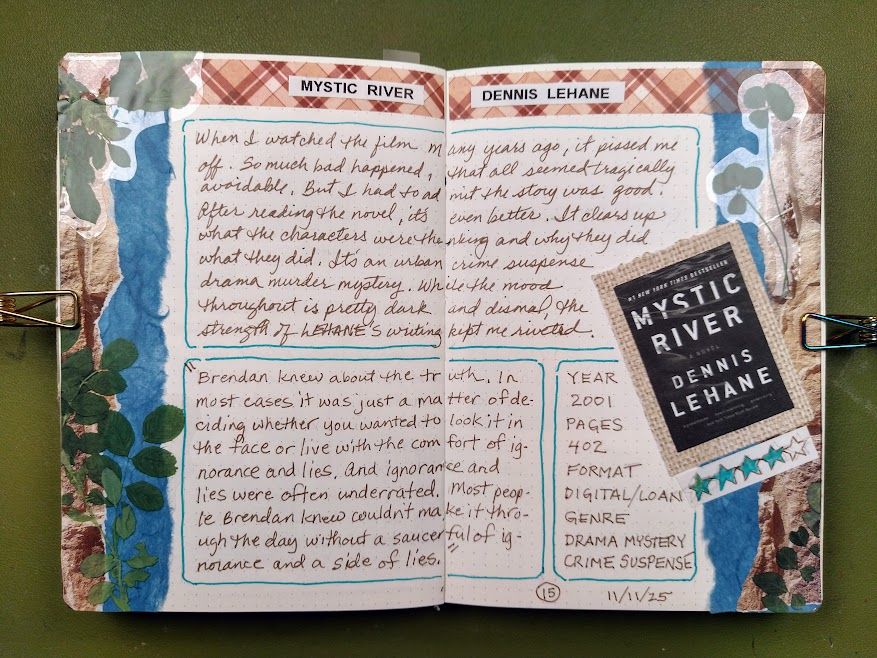 MYSTIC RIVER
DENNIS LEHANE
When I watched the film many years ago, it pissed me
off. So much bad happened, that all seemed tragically
avoidable. But I had to admit the story was good.
After reading the novel, it's even better. It clears up
what the characters were thenking and why they did
what they did. It's an urban crime suspense
drama murder mystery. While the mood
throughout is pretty dark and dismal, the
strength of LEHANE'S writing kept me riveted.
"Brendan knew about the truth. In
most cases it was just a matter of de-
ciding whether you wanted to look it in
the face or live with the comfort of ig-
norance and lies. And ignorance and
lies were often underrated. Most peop-
le Brendan knew couldn't make it thro-
ugh the day without a saucerful of ig-
norance and a side of lies."
YEAR
2001
PAGES
402
FORMAT
DIGITAL/LOAN
GENRE
DRAMA MYSTERY
CRIME SUSPENSE
#1 NEW YORK TIMES BESTSELLER
MYSTIC
RIVER
A NOVEL
DENNIS
LEHANE
15
11/11/25